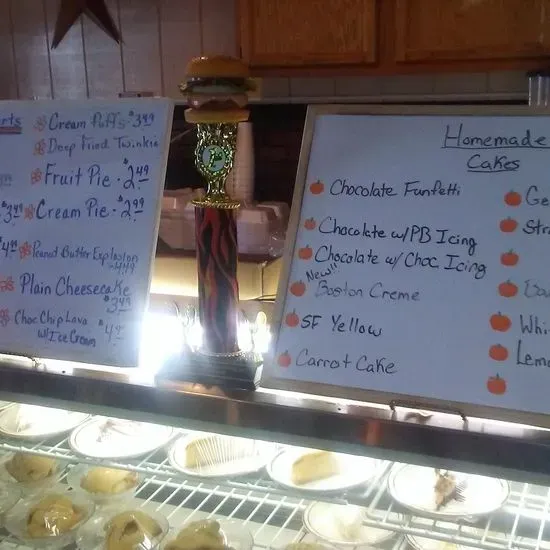 Cream Puffs $3.49
Deep Fried Twinkie
Fruit Pie $2.49
$3.49
Cream Pie $2.99
Peanut Butter Explosion
4.49
Plain Cheesecake
$3.49
Choc Chip Lava
w/Ice Cream
Homemade
Cakes
Chocolate Funfetti
Chocolate w/PB Icing
Chocolate w/ Choc Icing
New!!
Boston Creme
SF Yellow
Carrot Cake
Ge
Stra
Whi
Lemo